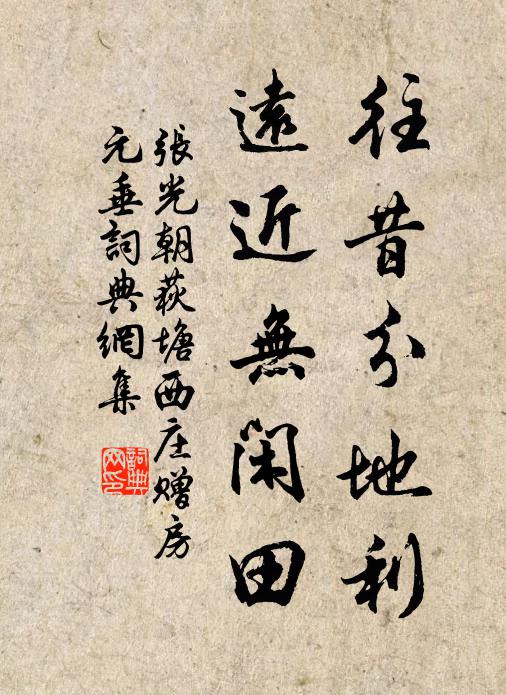 往昔分地利
遠近無閑田
張光朝荻塘西庄赠房
元垂詞典網集
詞典
网印